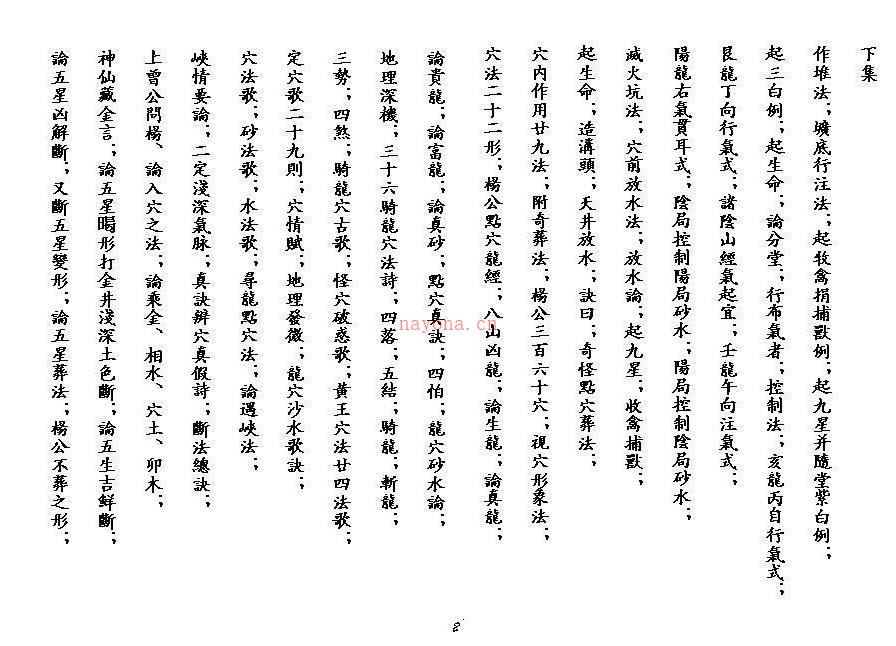 下集
作堆法；壙底行注法；起牧禽捐捕獸例；起九星并隨堂紫白例；
起三白例；起生命；論分堂；行布氣者；控制法；亥龍丙自行氣式；
艮龍丁向行氣式；諸陰山經氣起宜；壬龍午向注氣式；
陽龍右氣貫耳式；陰局控制陽局砂水；陽局控制陰局砂水；
滅火坑法；穴前放水法；放水論；起九星；收禽捕獸；
起生命；造溝頭；天井放水；訣曰；奇怪點穴葬法；
穴內作用廿九法；附奇葬法；楊公三百六十穴；視穴形象法；
穴法二十二形；楊公點穴龍經；八山凶龍；論生龍；論真龍；
論貴龍；論富龍；論真砂；點穴真訣；四怕；龍穴砂水論；
地理深機；三十六騎龍穴法詩；四落；五結；騎龍；斬龍；
三勢；四煞；騎龍穴古歌；怪穴破惑歌；黃王穴法廿四法歌；
定穴歌二十九則；穴情賦；地理發微；龍穴沙水歌訣；
穴法歌；砂法歌；水法歌；尋龍點穴法；論遇峽法；
峽情要論；二定淺深氣脉；真訣辨穴真假詩；斷法總訣；
上曾公問楊、論入穴之法；論乘金、相水、穴土、卯木；
神仙藏金言；論五星暍形打金井淺深土色斷；論五生吉鮮斷；
論五星凶解斷，又斷五星變形；論五星葬法；楊公不葬之形；
nayona.cn
2